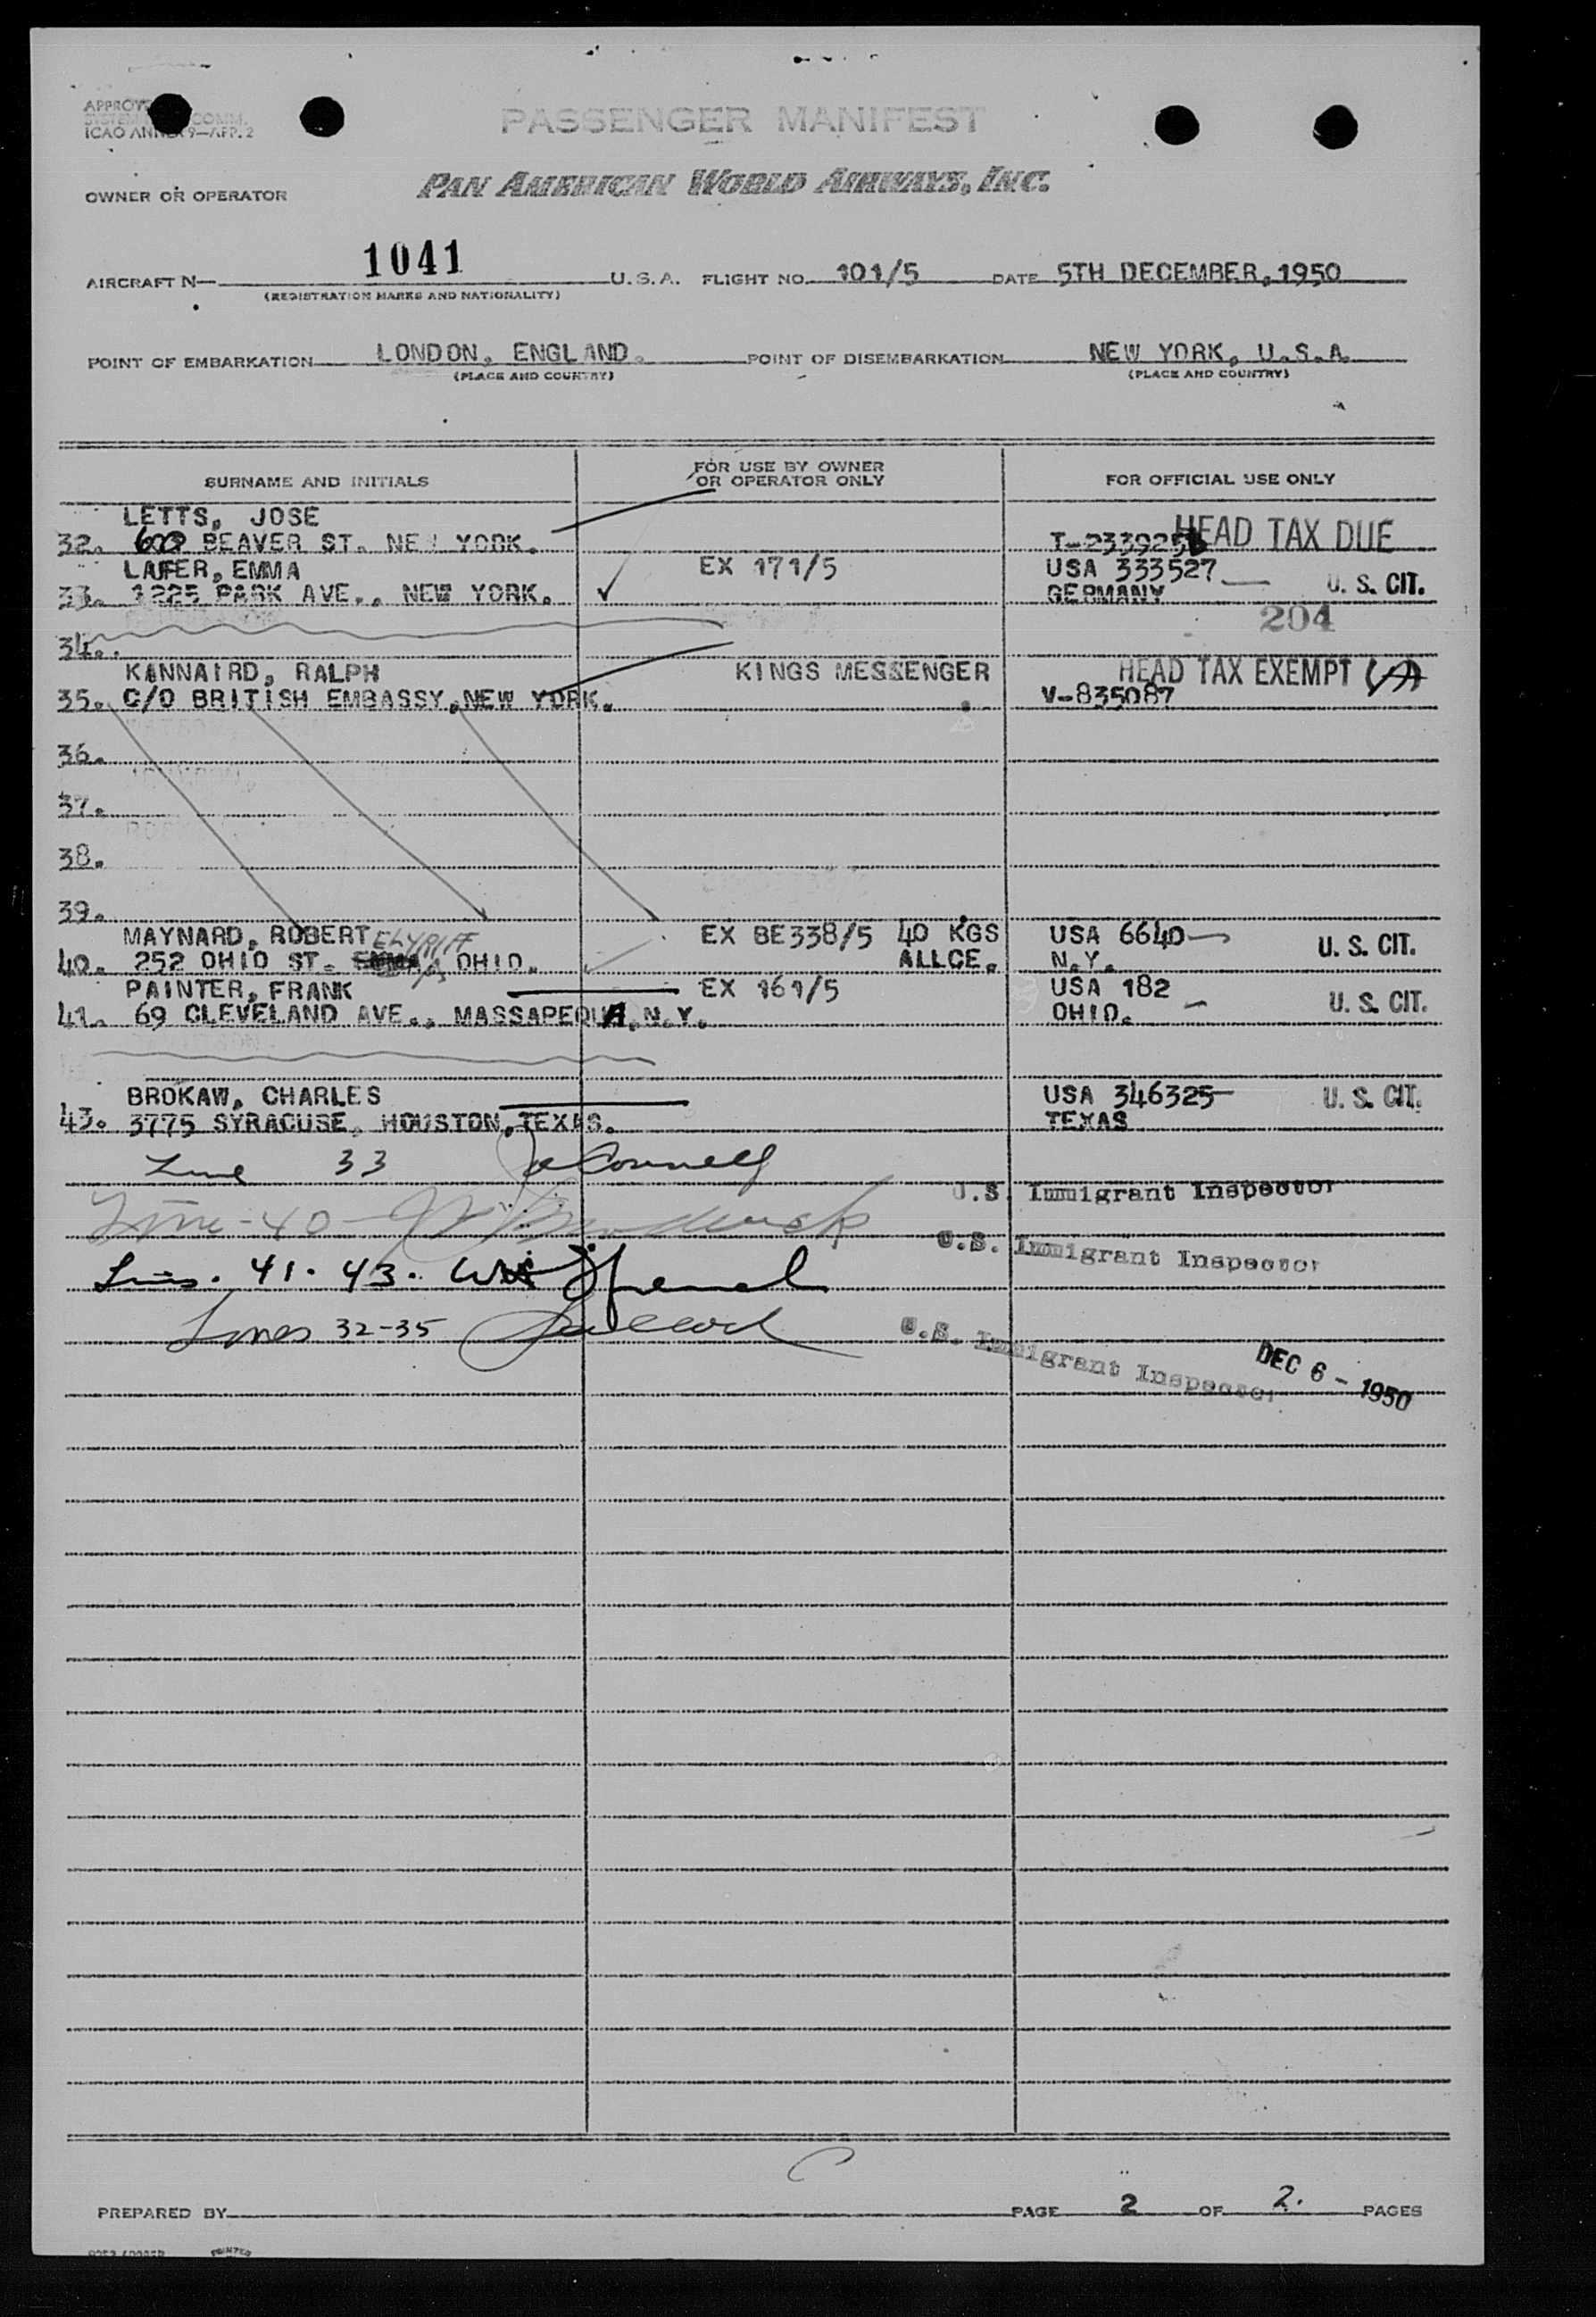 PASSENGER MANIFEST
ICAO ANNEX 9—APP. 2
OWNER OR OPERATOR PAN AMERICAN WORLD AIRWAYS, INC.
AIRCRAFT N— 1041 U.S.A. FLIGHT NO. 101/5 DATE 5TH DECEMBER, 1950
(REGISTRATION MARKS AND NATIONALITY)
POINT OF EMBARKATION LONDON, ENGLAND. POINT OF DISEMBARKATION NEW YORK, U.S.A.
(PLACE AND COUNTRY) (PLACE AND COUNTRY)
SURNAME AND INITIALS FOR USE BY OWNER OR OPERATOR ONLY FOR OFFICIAL USE ONLY
LETTS, JOSE HEAD TAX DUE
32. BEAVER ST. NEW YORK. T-233925
LAUFER, EMMA EX 171/5 USA 333527
33. 1225 PARK AVE., NEW YORK. GERMANY U. S. CIT.
204
34.
KANNAIRD, RALPH KINGS MESSENGER HEAD TAX EXEMPT
35. C/O BRITISH EMBASSY, NEW YORK. V-835087
36.
37.
38.
39.
MAYNARD, ROBERT EX BE338/5 40 KGS USA 6640 U. S. CIT.
40. 252 OHIO ST. OHIO. ALLCE. N.Y.
PAINTER, FRANK EX 161/5 USA 182 U. S. CIT.
41. 69 CLEVELAND AVE., MASSAPEQUA, N.Y. OHIO.
BROKAW, CHARLES USA 346325 U. S. CIT.
43. 3775 SYRACUSE, HOUSTON, TEXAS. TEXAS
Line 33 U.S. Immigrant Inspector
Line - 40 - U.S. Immigrant Inspector
Lines. 41. 43.
Lines 32-35 U.S. Immigrant Inspector
DEC 6 - 1950
PREPARED BY PAGE 2 OF 2. PAGES